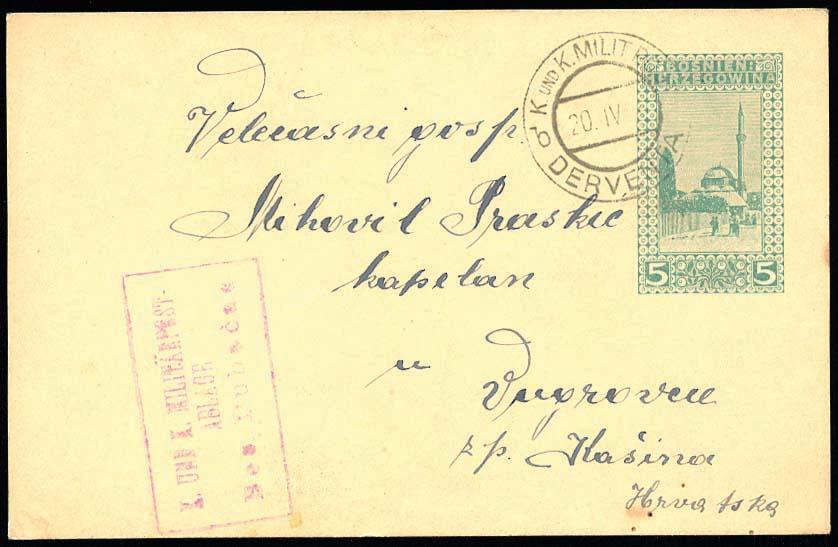 K UND K. MILIT. P
20. IV
DERVENTA
BOSNIEN-
HERZEGOWINA
5 5
Velečasni gosp.
Mihovil Praskić
kapelan
u
Dugrovcu
z p. Kašina
Hrvatska
K. UND K. MILITÄRPOST-
ABLAGE
Bos.